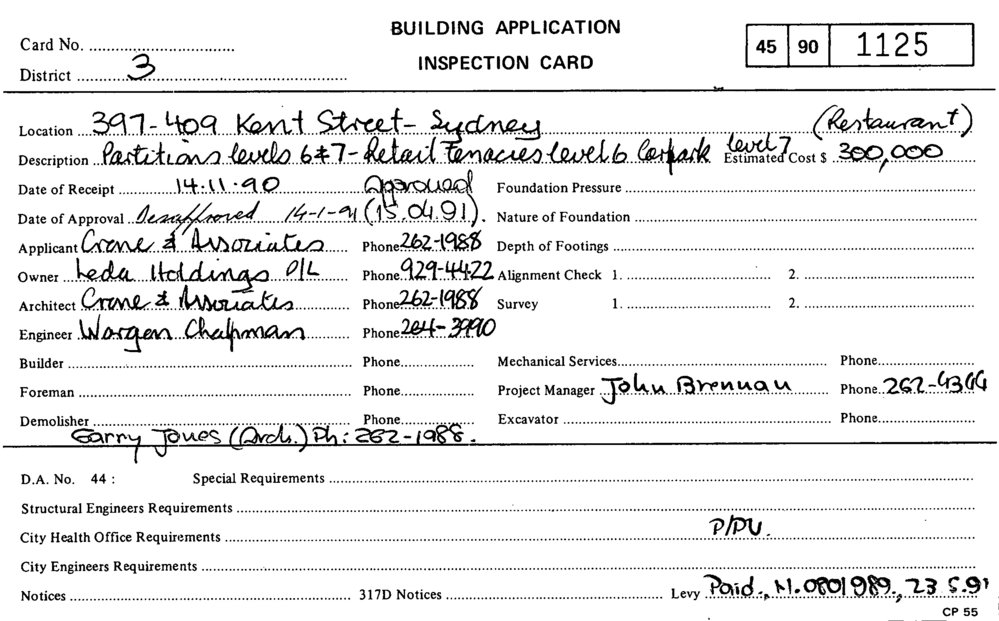 BUILDING APPLICATION
INSPECTION CARD
Card No.
District 3
45 90 1125
Location 397-409 Kent Street- Sydney (Restaurant)
Description Partitions levels 6&7- Retail Tenacies level 6 Carpark level 7 Estimated Cost $ 300,000
Date of Receipt 14.11.90 Approved Foundation Pressure
Date of Approval Disapproved 14-1-91 (15.04.91). Nature of Foundation
Applicant Crone & Associates Phone 262-1988 Depth of Footings
Owner Leda Holdings P/L Phone 929-4422 Alignment Check 1. 2.
Architect Crone & Associates Phone 262-1988 Survey 1. 2.
Engineer Wargon Chapman Phone 264-3990
Builder Phone Mechanical Services Phone
Foreman Phone Project Manager John Brennan Phone 262-4344
Demolisher Phone Excavator Phone
Garry Jones (Arch.) Ph: 262-1988.
D.A. No. 44 : Special Requirements
Structural Engineers Requirements
City Health Office Requirements P/PU.
City Engineers Requirements
Notices 317D Notices Levy Paid., N.0801989., 23 5.91
CP 55